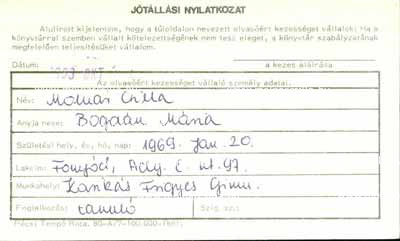 JÓTÁLLÁSI NYILATKOZAT
Alulírott kijelentem, hogy a túloldalon nevezett olvasóért kezességet vállalok: Ha a
könyvtárral szemben vállalt kötelezettségének nem tesz eleget, a könyvtár szabályzatának
megfelelően teljesítésüket vállalom.
Dátum:
a kezes aláírása
Az olvasóért kezességet vállaló személy adatai.
Név: Molnár Csilla
Anyja neve: Bogdán Mária
Születési hely, év, hó, nap: 1969. jan. 20.
Lakcím: Fonyód, Ady E. u. 97.
Munkahely: Karikás Frigyes Gimn.
Foglalkozása: tanuló Szig. sz.:
Pécsi Tempó Rota.